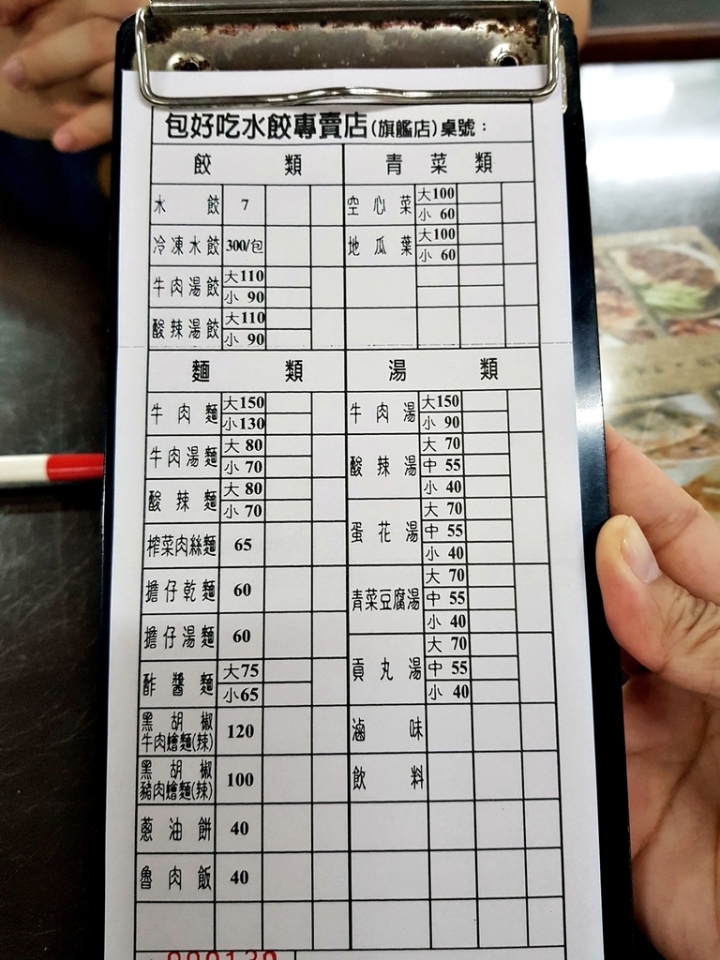 包好吃水餃專賣店(旗艦店)桌號：
餃類
水餃 7
冷凍水餃 300/包
牛肉湯餃 大110
小 90
酸辣湯餃 大110
小 90
青菜類
空心菜 大100
小 60
地瓜葉 大100
小 60
麵類
牛肉麵 大150
小130
牛肉湯麵 大 80
小 70
酸辣麵 大 80
小 70
榨菜肉絲麵 65
擔仔乾麵 60
擔仔湯麵 60
酢醬麵 大75
小65
黑胡椒
牛肉燴麵(辣) 120
黑胡椒
豬肉燴麵(辣) 100
蔥油餅 40
魯肉飯 40
湯類
牛肉湯 大150
小 90
酸辣湯 大 70
中 55
小 40
蛋花湯 大 70
中 55
小 40
青菜豆腐湯 大 70
中 55
小 40
貢丸湯 大 70
中 55
小 40
滷味
飲料